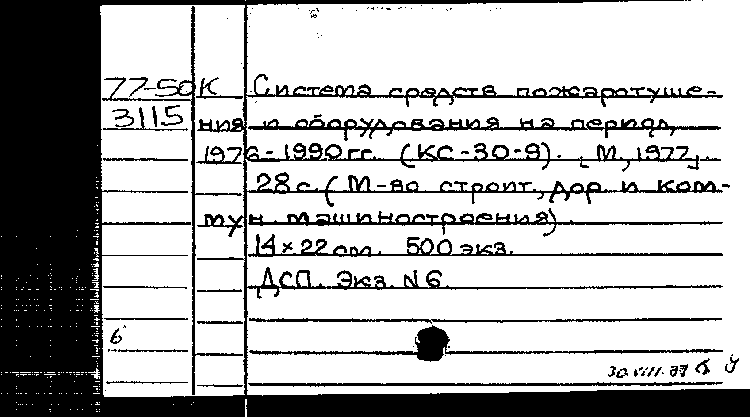 77-50К Система средств пожаротуше-
3115 ния и оборудования на период
1976-1990 гг. (КС-30-9). [М., 1977].
28 с. (М-во строит., дор. и ком-
мун. машиностроения).
14×22 см. 500 экз.
ДСП. Экз. N 6
6
30.VIII.77